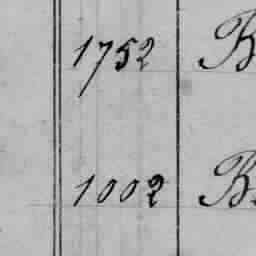 1752 B
1002 B